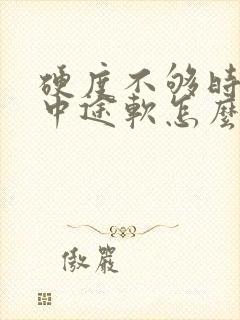 硬度不够时
中途軟怎麼
傲嚴